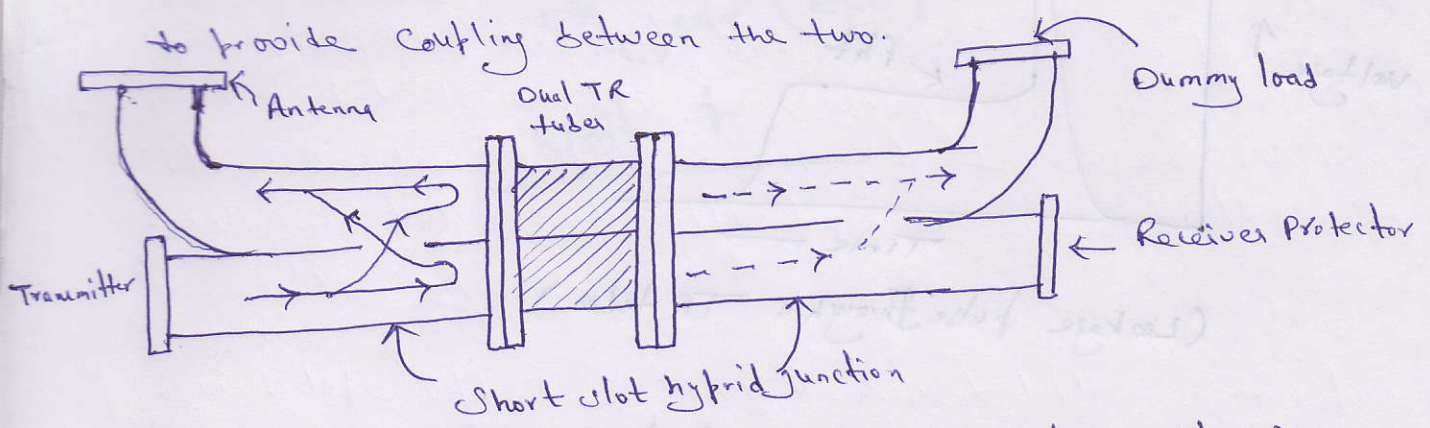 to provide Coupling between the two.
Antenna
Dual TR
tubes
Dummy load
Transmitter
Receiver Protector
Short slot hybrid junction